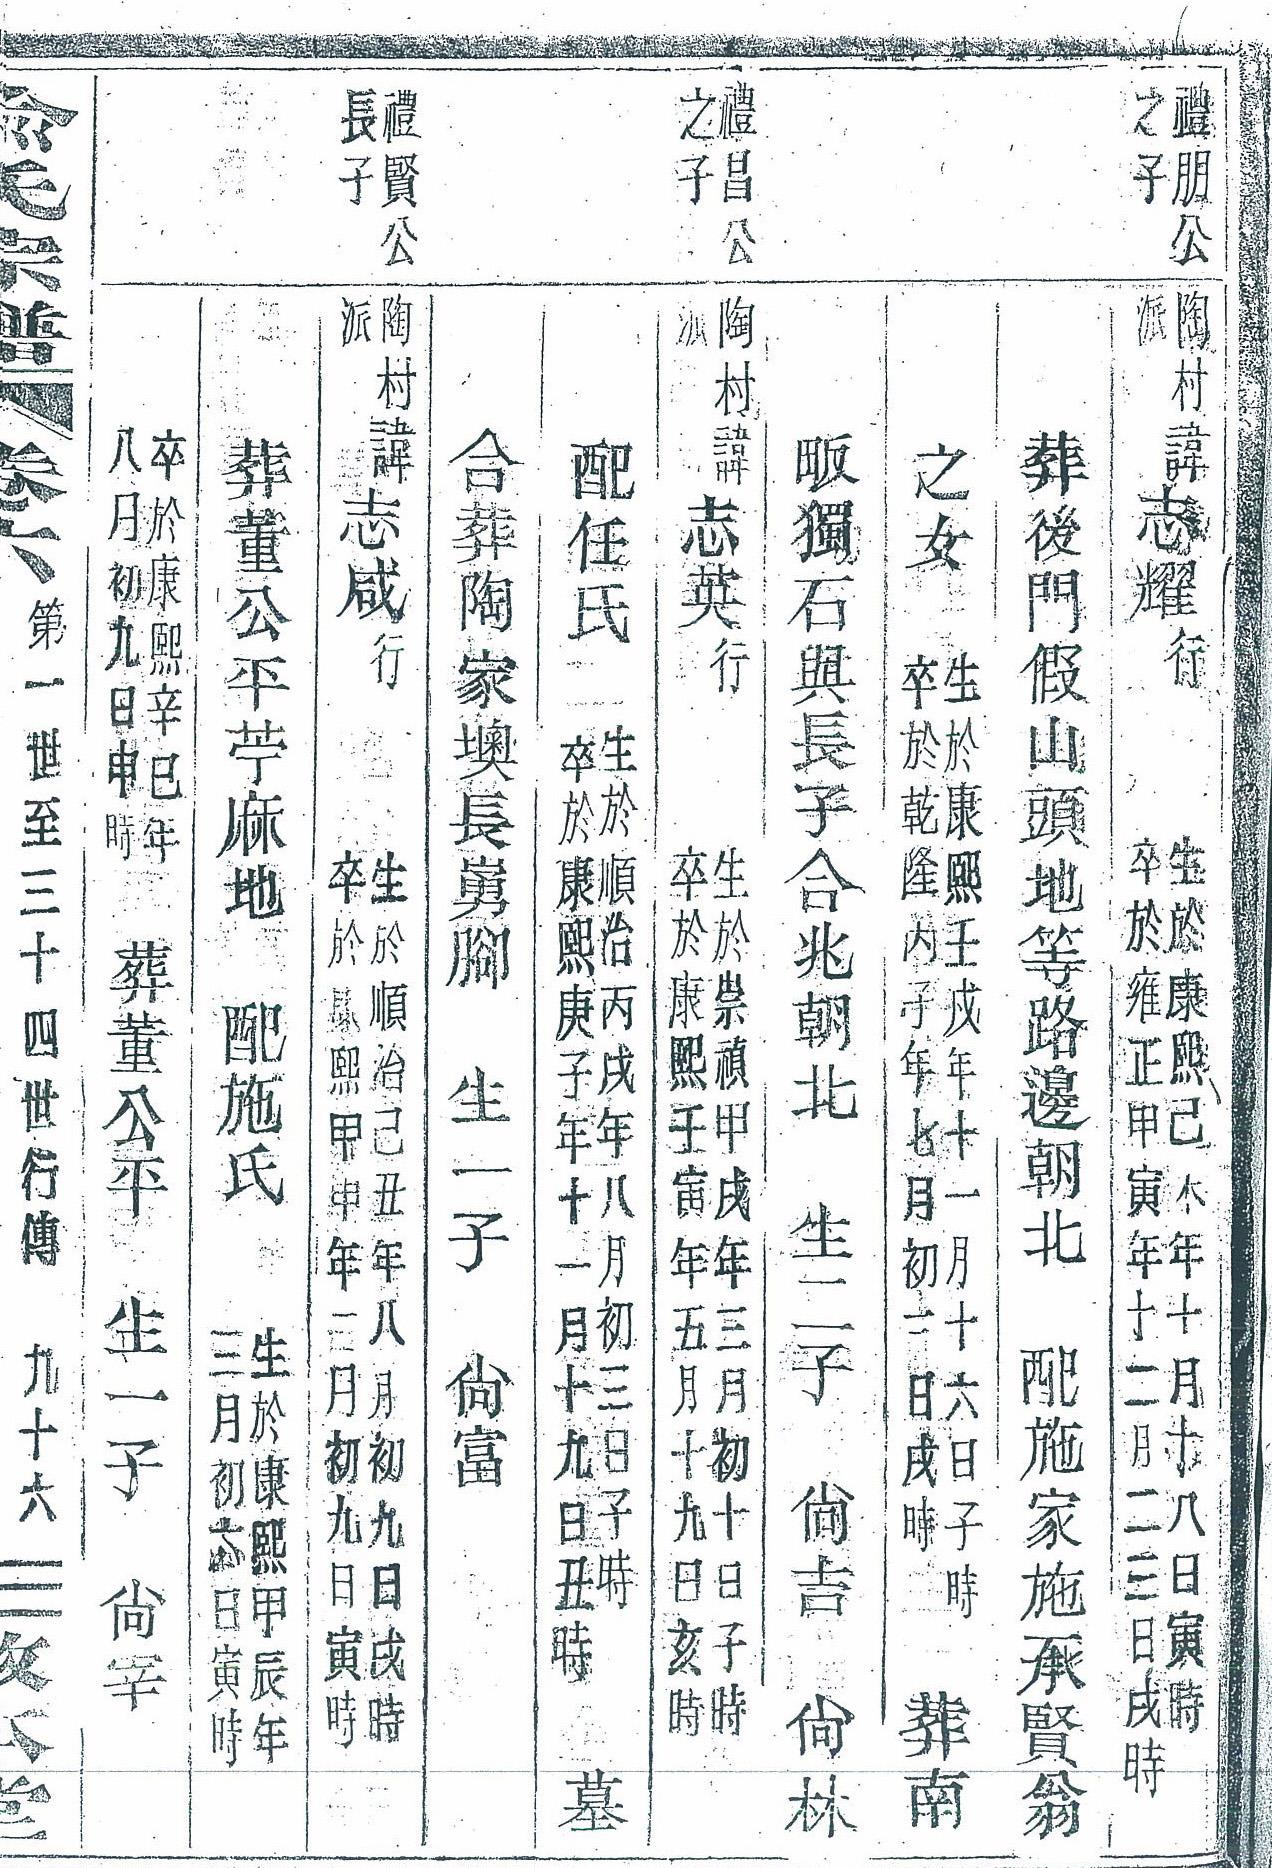 禮朋公
之子
陶村
派
諱志耀行
生於康熙己未年十月十八日寅時
卒於雍正甲寅年十二月二三日戌時
葬後門假山頭地等路邊朝北 配施家施承賢翁
之女
生於康熙壬戌年十一月十六日子時
卒於乾隆丙子年七月初二日戌時
葬南
畈獨石與長子合兆朝北 生二子 尙吉 尙林
禮昌公
之子
陶村
派
諱志英行
生於崇禎甲戌年三月初十日子時
卒於康熙壬寅年五月十九日亥時
配任氏
生於順治丙戌年八月初三日子時
卒於康熙庚子年十一月十九日丑時
墓
合葬陶家墺長嶲腳 生一子 尙富
禮賢公
長子
陶村
派
諱志咸行
生於順治己丑年八月初九日戌時
卒於康熙甲申年二月初九日寅時
葬董公平苧麻地 配施氏
生於康熙甲辰年
三月初六日寅時
卒於康熙辛巳年
八月初九日申時
葬董公平 生一子 尙宰
俞氏宗譜 卷六 第一世至三十四世行傳 九十六 三敬本堂